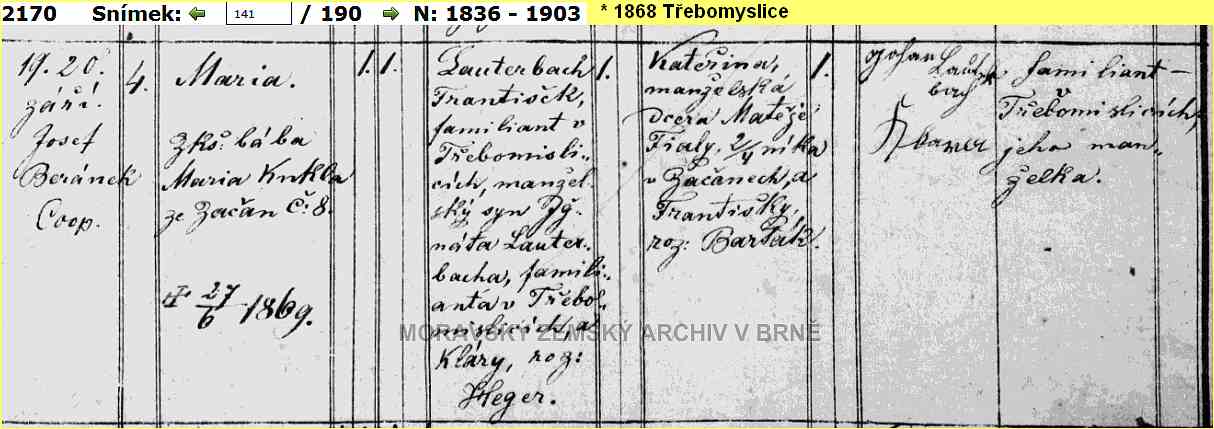 2170 Snímek: 141 / 190 N: 1836 - 1903 * 1868 Třebomyslice
19. 20.
září.
Josef
Beránek
Coop.
4.
Maria.
Zkš. bába
Maria Kukla
ze Začan Č: 8.
27/6 1869.
1. 1.
Lauterbach
František,
familiant v
Třebomisli-
cích, manžel-
ský syn Ig-
náta Lauter-
bacha, famili-
anta v Třebo-
mislicích, a
Kláry, roz:
Heger.
1.
Kateřina,
manželská
dcera Matěje
Fialy, 2/4 níka
v Začanech, a
Františky,
roz: Barták.
1.
Johan Lauter
bach
familiant
v
Třebomislicích,
jeho man-
želka.
MORAVSKÝ ZEMSKÝ ARCHIV V BRNĚ